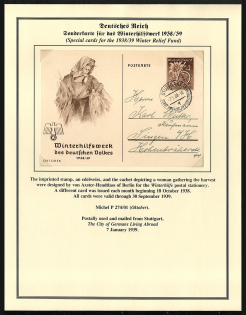 Deutsches Reich
Sonderkarte für das Winterhilfswerk 1938/39
(Special cards for the 1938/39 Winter Relief Fund)
POSTKARTE
Herrn
Karl
Winterhilfswerk
des deutschen Volkes
1938/39
The imprinted stamp, an edelweiss, and the cachet depicting a woman gathering the harvest
were designed by von Axster-Heudtlass of Berlin for the Winterhilfe postal stationery.
A different card was issued each month beginning 18 October 1938.
All cards were valid through 30 September 1939.
Michel P 274/01 (Oktober).
Postally used and mailed from Stuttgart.
The City of Germans Living Abroad
7 January 1939.